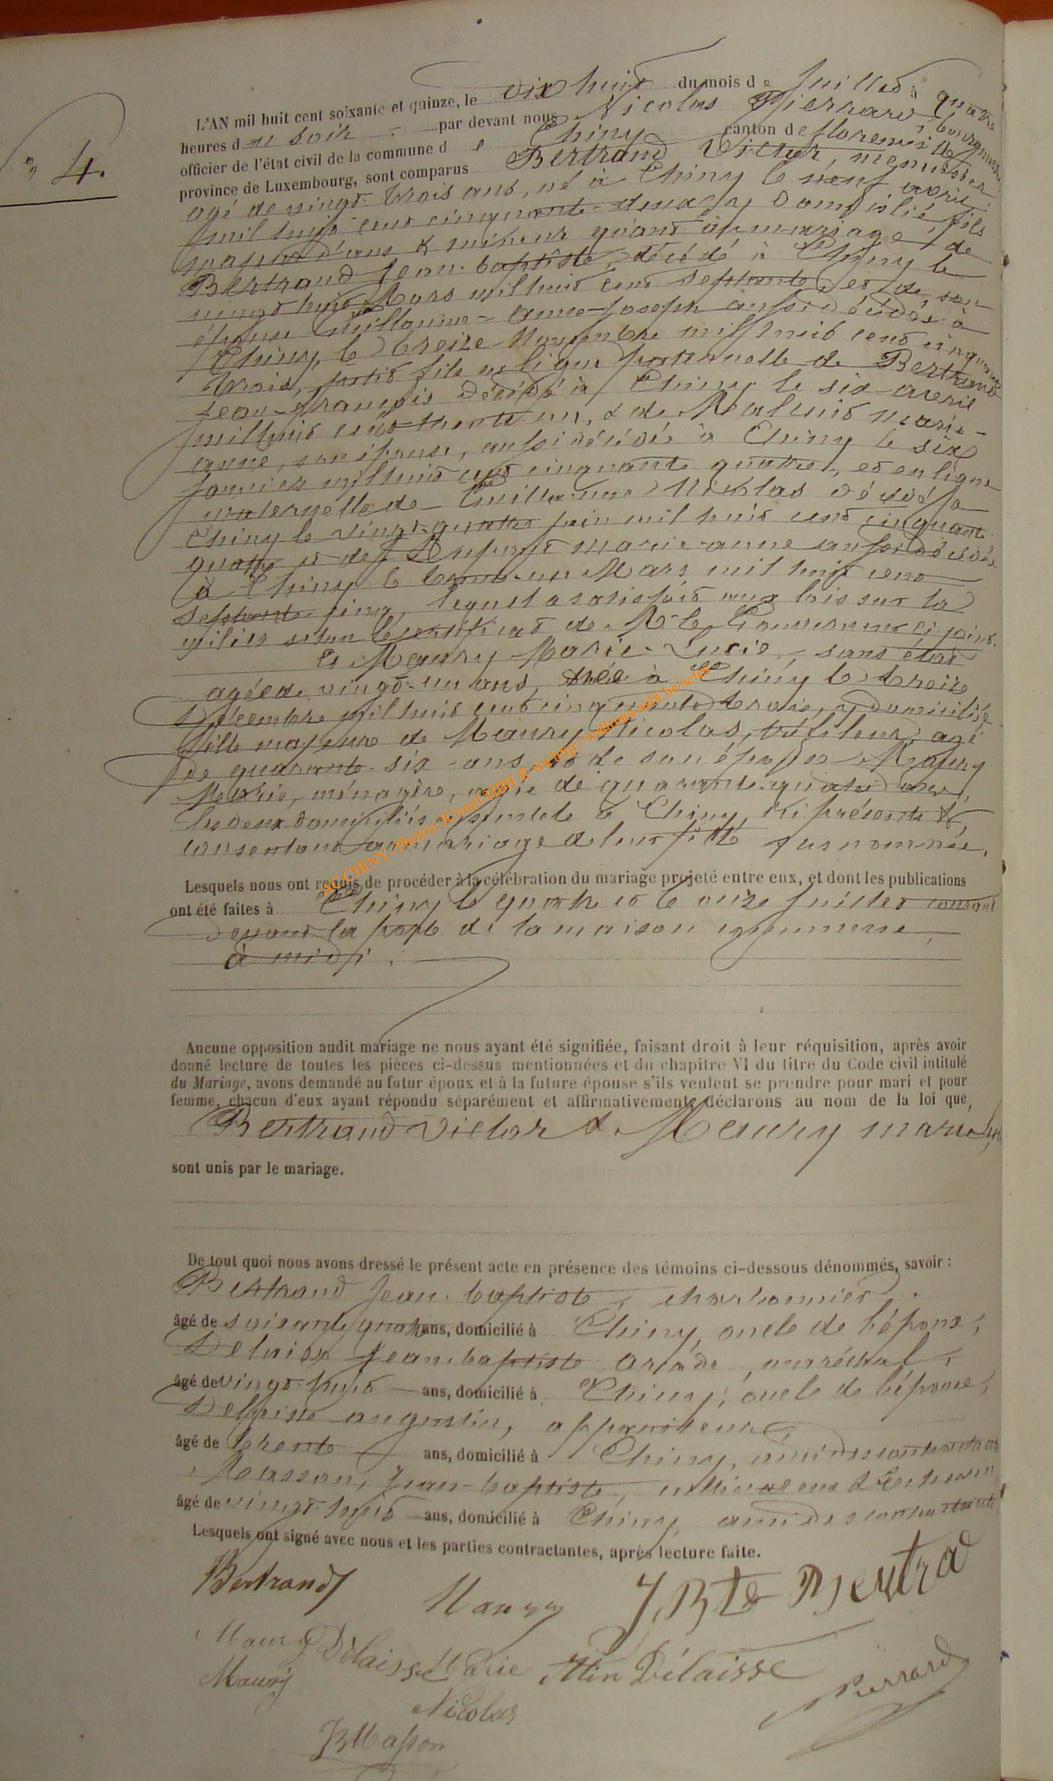 n° 4.
L'AN mil huit cent soixante et quinze, le dix huit du mois de Juillet à quatre
heures du soir par devant nous Nicolas Pierrard, bourgmestre
officier de l'état civil de la commune de Chiny canton de florenville
province de Luxembourg, sont comparus Bertrand Victor, menuisier,
agé de vingt-trois ans, né à Chiny le neuf avril
mil huit cent cinquante-deux, y domicilié, fils
majeur d'ans & mineur quant au mariage, de
Bertrand Jean-baptiste, décédé à Chiny le
vingt huit Mars mil huit cent septante, et de son
épouse Guillaume-anne-Joseph aussi décédée à
Chiny, le treize Novembre mil huit cent cinquante
trois, petit fils en ligne paternelle de Bertrand
Jean-françois décédé à Chiny le six avril
mil huit cent trente un, & de marie-
anne, son épouse, aussi décédée à Chiny le six
Janvier mil huit cent cinquante quatre, et en ligne
maternelle de Guillaume Nicolas décédé à
Chiny le vingt-quatre juin mil huit cent cinquante
quatre et de marie-anne aussi décédée
à Chiny le trente-un Mars mil huit cent
septante cinq, lequel a satisfait aux lois sur la
milice selon certificat de Mr le Gouverneur ci-joint.
Et Maury Marie-Lucie, sans état
agée de vingt-un ans, née à Chiny le treize
Décembre mil huit cent cinquante trois, y domiciliée
fille majeure de Maury Nicolas, tréfileur, agé
de quarante-six ans, et de son épouse Maury
Marie, ménagère, agée de quarante-quatre ans,
les deux domiciliés ensemble à Chiny, ici présents &
consentant au mariage de leur fille susnommée.
Lesquels nous ont requis de procéder à la célébration du mariage projeté entre eux, et dont les publications
ont été faites à Chiny le quatre et le onze Juillet courant
devant la porte de la maison commune,
à midi.
Aucune opposition audit mariage ne nous ayant été signifiée, faisant droit à leur réquisition, après avoir
donné lecture de toutes les pièces ci-dessus mentionnées et du chapitre VI du titre du Code civil intitulé
du Mariage, avons demandé au futur époux et à la future épouse s'ils veulent se prendre pour mari et pour
femme, chacun d'eux ayant répondu séparément et affirmativement, déclarons au nom de la loi que,
Bertrand Victor & Maury marie
sont unis par le mariage.
De tout quoi nous avons dressé le présent acte en présence des témoins ci-dessous dénommés, savoir :
Bertrand Jean-baptiste, charbonnier
âgé de soixante quatre ans, domicilié à Chiny, oncle de l'époux;
Delaisse Jean-baptiste maréchal,
âgé de vingt-huit ans, domicilié à Chiny, oncle de l'épouse;
Delaisse augustin, appariteur,
âgé de trente ans, domicilié à Chiny, ami des contractants
Masson, Jean-baptiste, cultivateur & Echevin
âgé de vingt-huit ans, domicilié à Chiny, ami des contractants
Lesquels ont signé avec nous et les parties contractantes, après lecture faite.
Bertrand Maury J. Bte Bertrad
Maury Delaisse Marie Atin Délaisse
Maury Nicolas Pierrard
JB Masson